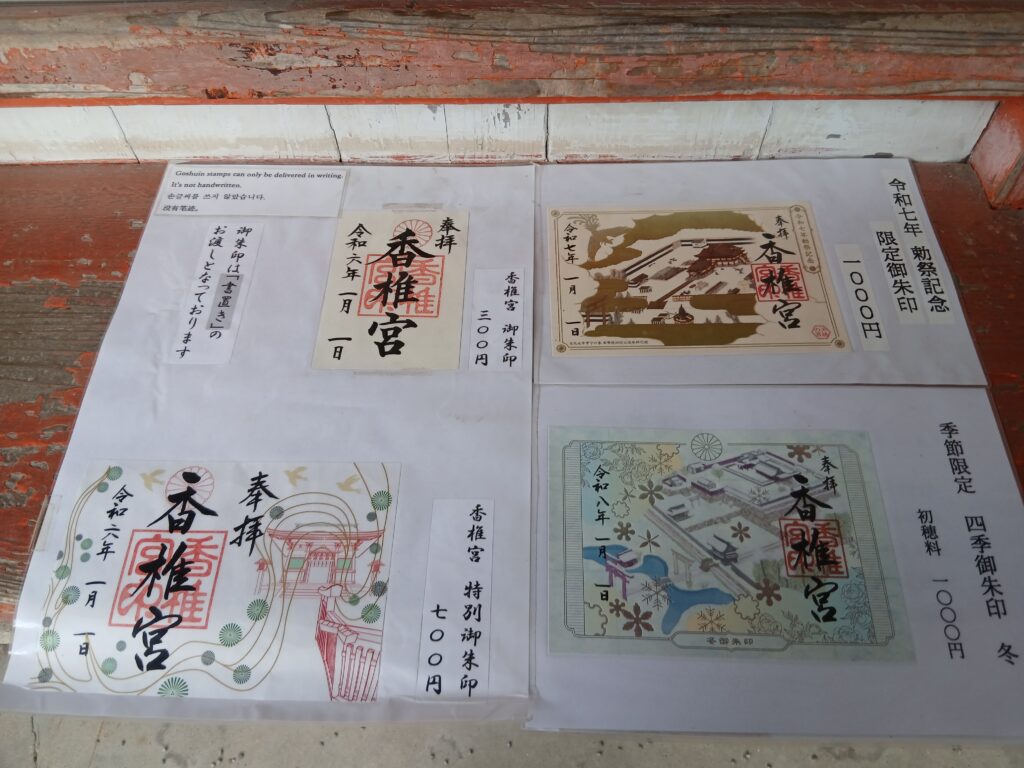 Goshuin stamps can only be delivered in writing.
It's not handwritten.
손글씨를 쓰지 않았습니다.
没有笔迹。
御朱印は「書置き」の
お渡しとなっております
奉拝
香椎宮
令和六年 一月 一日
香椎宮 御朱印
三〇〇円
令和七年 勅祭記念
限定御朱印
一〇〇〇円
令和七年勅祭記念
奉拝
香椎宮
令和七年 一月 一日
奉拝
香椎宮
令和六年 一月 一日
香椎宮 特別御朱印
七〇〇円
季節限定 四季御朱印 冬
初穂料 一〇〇〇円
奉拝
香椎宮
令和八年 一月 一日
冬御朱印